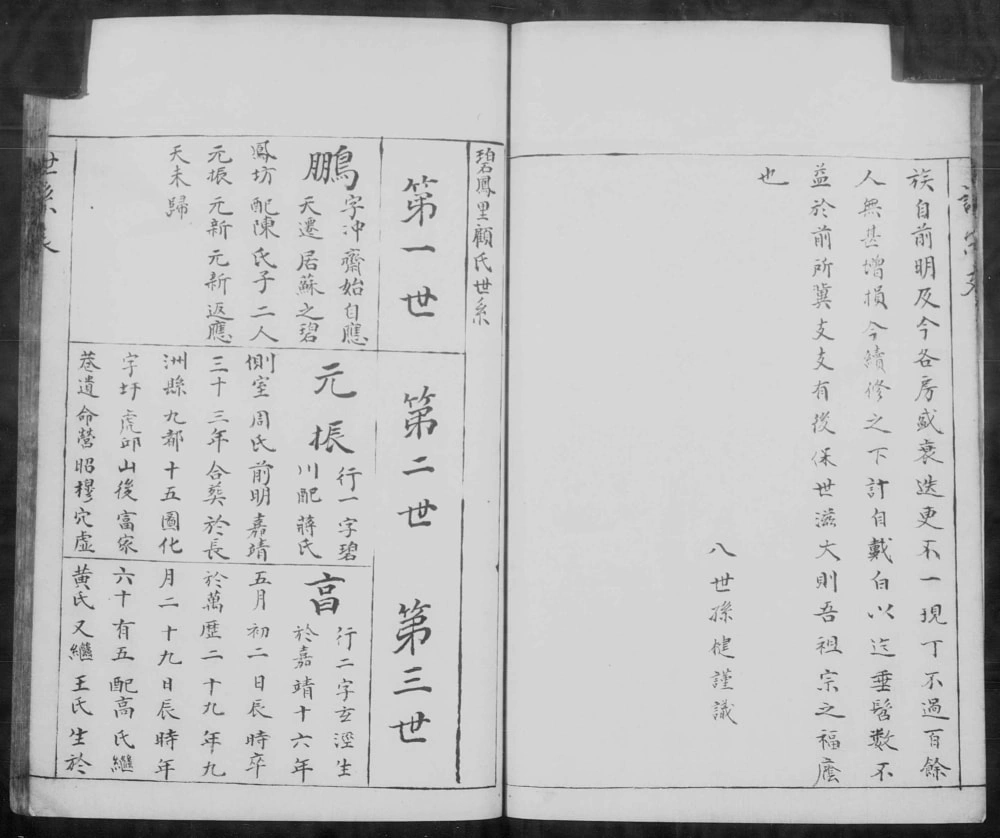 族自前明及今各房盛衰迭更不一現丁不過百餘
人無甚增損今續修之下計自戴白以迄垂髫數不
益於前所冀支支有後保世滋大則吾祖宗之福廕
也
八世孫健謹識
碧鳳里顧氏世系
第一世
鵬
字冲齋始自應
天遷居蘇之碧
鳳坊配陳氏子二人
元振元新元新返應
天未歸
第二世
元振
行一字碧
川配蔣氏
側室周氏前明嘉靖
三十三年合葬於長
洲縣九都十五圖化
字圩虎邱山後富家
巷遺命營昭穆穴虛
第三世
行二字玄涇生
於嘉靖十六年
五月初二日辰時卒
於萬歷二十九年九
月二十九日辰時年
六十有五配高氏繼
黄氏又繼王氏生於
世系表